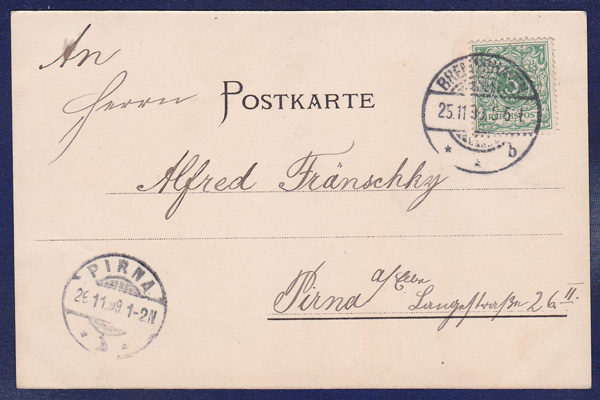 An
Herrn
POSTKARTE
5
REICHSPOST
25.11.9
b
Alfred Fränschky
PIRNA
26.11.99 1-2N
Pirna a/Elbe
Langestraße 26 II.